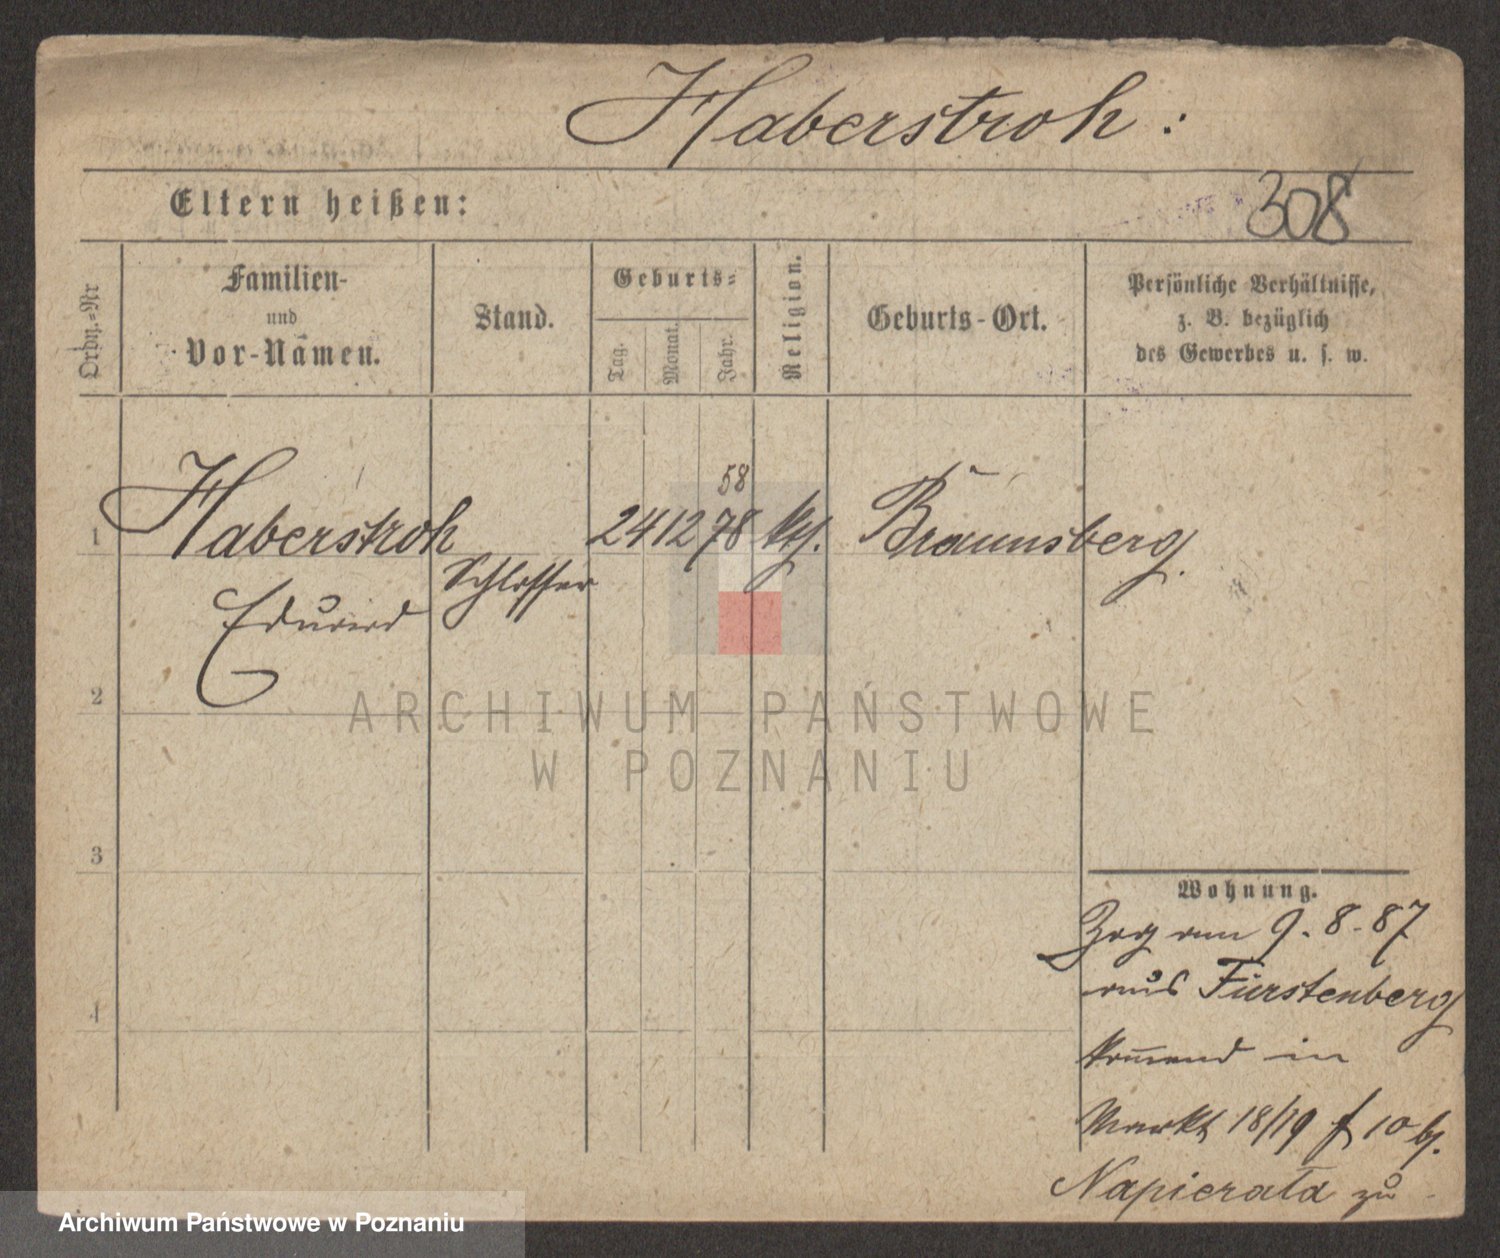 Haberstroh :
Eltern heißen:
308
Ordn.-Nr
Familien-
und
Vor-Namen.
Stand.
Geburts-
Tag.
Monat.
Jahr.
Religion.
Geburts-Ort.
Persönliche Verhältnisse,
z. B. bezüglich
des Gewerbes u. s. w.
58
1 Haberstroh 24 12 78 kth. Braunsberg.
Schlosser
Eduard
2
ARCHIWUM PAŃSTWOWE
W POZNANIU
3
Wohnung.
Zog am 9.8.87
aus Fürstenberg
4
kom̄end in
Markt 18/19 10 bj.
Napierała zu
Archiwum Państwowe w Poznaniu